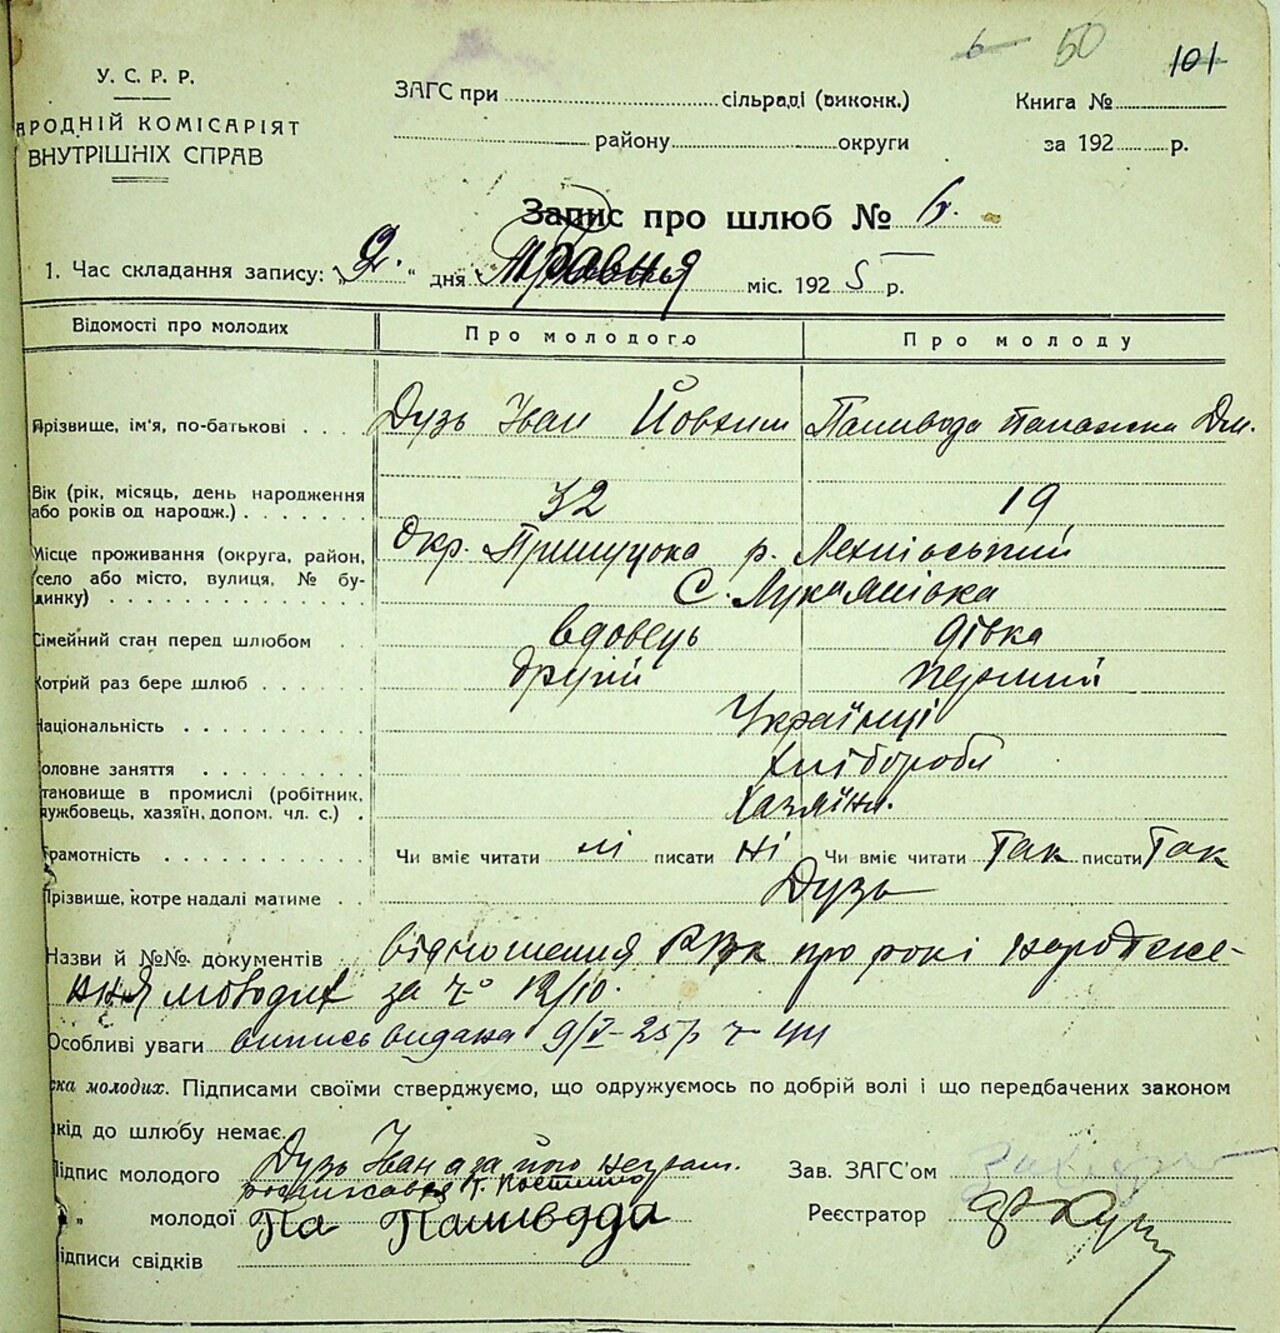 6 50 101
У. С. Р. Р.
АРОДНІЙ КОМІСАРІЯТ
ВНУТРІШНІХ СПРАВ
ЗАГС при сільраді (виконк.)
району округи
Книга №
за 192 р.
Запис про шлюб № 6.
1. Час складання запису: „9.“ дня Травня міс. 1925 р.
Відомості про молодих Про молодого Про молоду
Прізвище, ім'я, по-батькові Дузь Іван Йовхим Паливода Палажка Дм.
Вік (рік, місяць, день народження
або років од народж.) 32 19
Місце проживання (округа, район, Окр. Прилуцока р.
село або місто, вулиця, № бу-
динку) С. Лукамівка
Сімейний стан перед шлюбом вдовець дівка
Котрий раз бере шлюб другий первий
Національність Українці
оловне заняття Хлібороби
тановище в промислі (робітник,
лужбовець, хазяїн, допом. чл. с.) Хазяїни.
Грамотність Чи вміє читати ні писати ні Чи вміє читати Так писати Так
Прізвище, котре надалі матиме Дузь
Назви й №№ документів відношення РВК про рокі народже-
ння молодих за ч° 12/10.
Особливі уваги випись видана 9/V-25р ч
ка молодих. Підписами своїми стверджуємо, що одружуємось по добрій волі і що передбачених законом
кід до шлюбу немає.
Підпис молодого Дузь Іван а за його неграм.
росписався Т.
„ молодої Па Паливода
ідписи свідків
Зав. ЗАГС'ом
Реєстратор